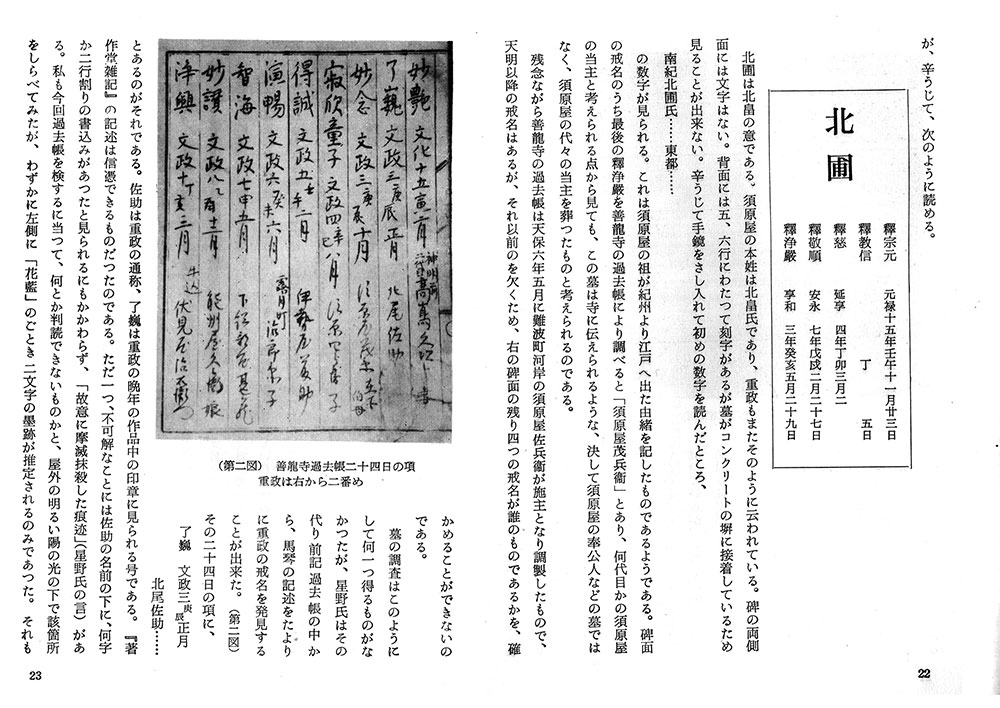 が、辛うじて、次のように読める。
北圃
釋宗元 元禄十五年壬午十一月廿三日
釋教信 丁 五日
釋慈 延享 四年丁卯三月二
釋敬順 安永 七年戊戌二月二十七日
釋浄厳 享和 三年癸亥五月二十九日
北圃は北畠の意である。須原屋の本姓は北畠氏であり、重政もまたそのように云われている。碑の両側
面には文字はない。背面には五、六行にわたつて刻字があるが墓がコンクリートの塀に接着しているため
見ることが出来ない。辛うじて手鏡をさし入れて初めの数字を読んだところ、
南紀北圃氏……東都……
の数字が見られる。これは須原屋の祖が紀州より江戸へ出た由緒を記したものであるようである。碑面
の戒名のうち最後の釋浄厳を善龍寺の過去帳により調べると「須原屋茂兵衞」とあり、何代目かの須原屋
の当主と考えられる点から見ても、この墓は寺に伝えられるような、決して須原屋の奉公人などの墓では
なく、須原屋の代々の当主を葬つたものと考えられるのである。
残念ながら善龍寺の過去帳は天保六年五月に難波町河岸の須原屋佐兵衞が施主となり調製したもので、
天明以降の戒名はあるが、それ以前のを欠くため、右の碑面の残り四つの戒名が誰のものであるかを、確
22
妙艶 文化十五寅二月
了巍 文政三庚辰正月 北尾佐助
妙念 文政三庚辰十月
寂欣童子 文政四辛巳八月
得誠 文政五壬午二月 伊勢屋
演暢 文政六癸未六月 露月町
智海 文政七甲五月
妙讃 文政八乙酉十二月
浄興 文政十丁亥三月 牛込 伏見屋
（第二図） 善龍寺過去帳二十四日の項
重政は右から二番め
かめることができないの
である。
墓の調査はこのように
して何一つ得るものがな
かつたが、星野氏はその
代り前記過去帳の中か
ら、馬琴の記述をたより
に重政の戒名を発見する
ことが出来た。（第二図）
その二十四日の項に、
了巍 文政三庚辰正月
北尾佐助……
とあるのがそれである。佐助は重政の通称、了巍は重政の晩年の作品中の印章に見られる号である。『著
作堂雑記』の記述は信憑できるものだつたのである。ただ一つ、不可解なことには佐助の名前の下に、何字
か二行割りの書込みがあつたと見られるにもかかわらず、「故意に摩滅抹殺した痕迹」（星野氏の言）があ
る。私も今回過去帳を検するに当つて、何とか判読できないものかと、屋外の明るい陽の光の下で該箇所
をしらべてみたが、わずかに左側に「花藍」のごとき二文字の墨跡が推定されるのみであつた。それも
23